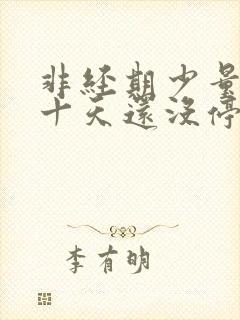 非经期少量
十天还没停
李有明